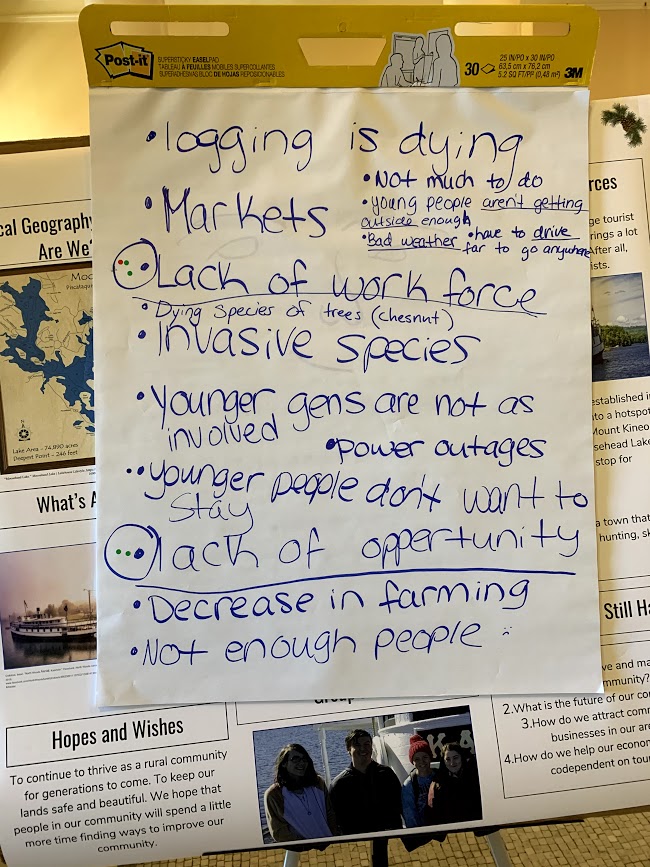 Post-it
SUPERSTICKY EASEL PAD
TABLEAU À FEUILLES MOBILES SUPER COLLANTES
SUPERADHESIVAS BLOC DE HOJAS REPOSICIONABLES
30
25 IN/PO x 30 IN/PO
63,5 cm x 76,2 cm
5.2 SQ FT/PP (0,48 m²)
3M
• logging is dying
• Not much to do
• Young people aren't getting
outside enough
• Markets
• Bad weather • have to drive
far to go anywhere
• Lack of work force
• Dying species of trees (chesnut)
• Invasive species
• Younger gens are not as
involved
• power outages
• younger people don't want to
stay
• lack of oppertunity
• Decrease in farming
• Not enough people :(
cal Geography
Are We
Moo
Piscataquis
Lake Area - 74,890 acres
Deepest Point - 246 feet
What's A
Hopes and Wishes
To continue to thrive as a rural community
for generations to come. To keep our
lands safe and beautiful. We hope that
people in our community will spend a little
more time finding ways to improve our
community.
Group
rces
ge tourist
rings a lot
After all,
ists.
established i
to a hotspot
Mount Kineo
sehead Lake
stop for
a town that
hunting, sk
Still Ha
ve and ma
mmunity?
2.What is the future of our co
3.How do we attract com
businesses in our are
4.How do we help our econo
codependent on tou